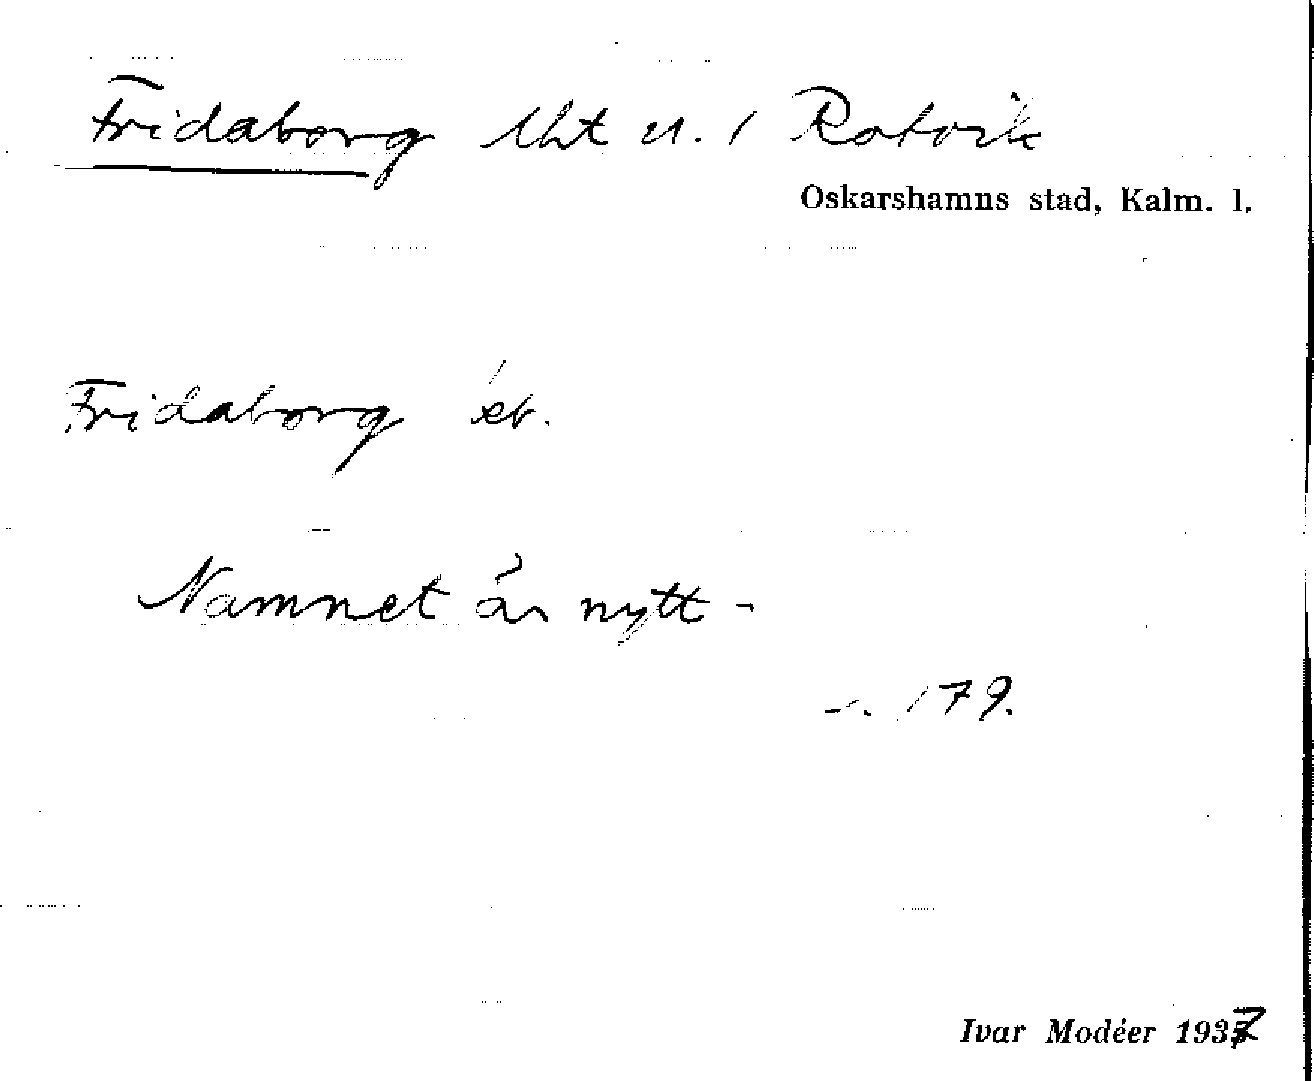 Fridaborg lht u. 1 Rotvik
Oskarshamns stad, Kalm. l.
Fridaborg
Namnet är nytt -
179.
Ivar Modéer 1937